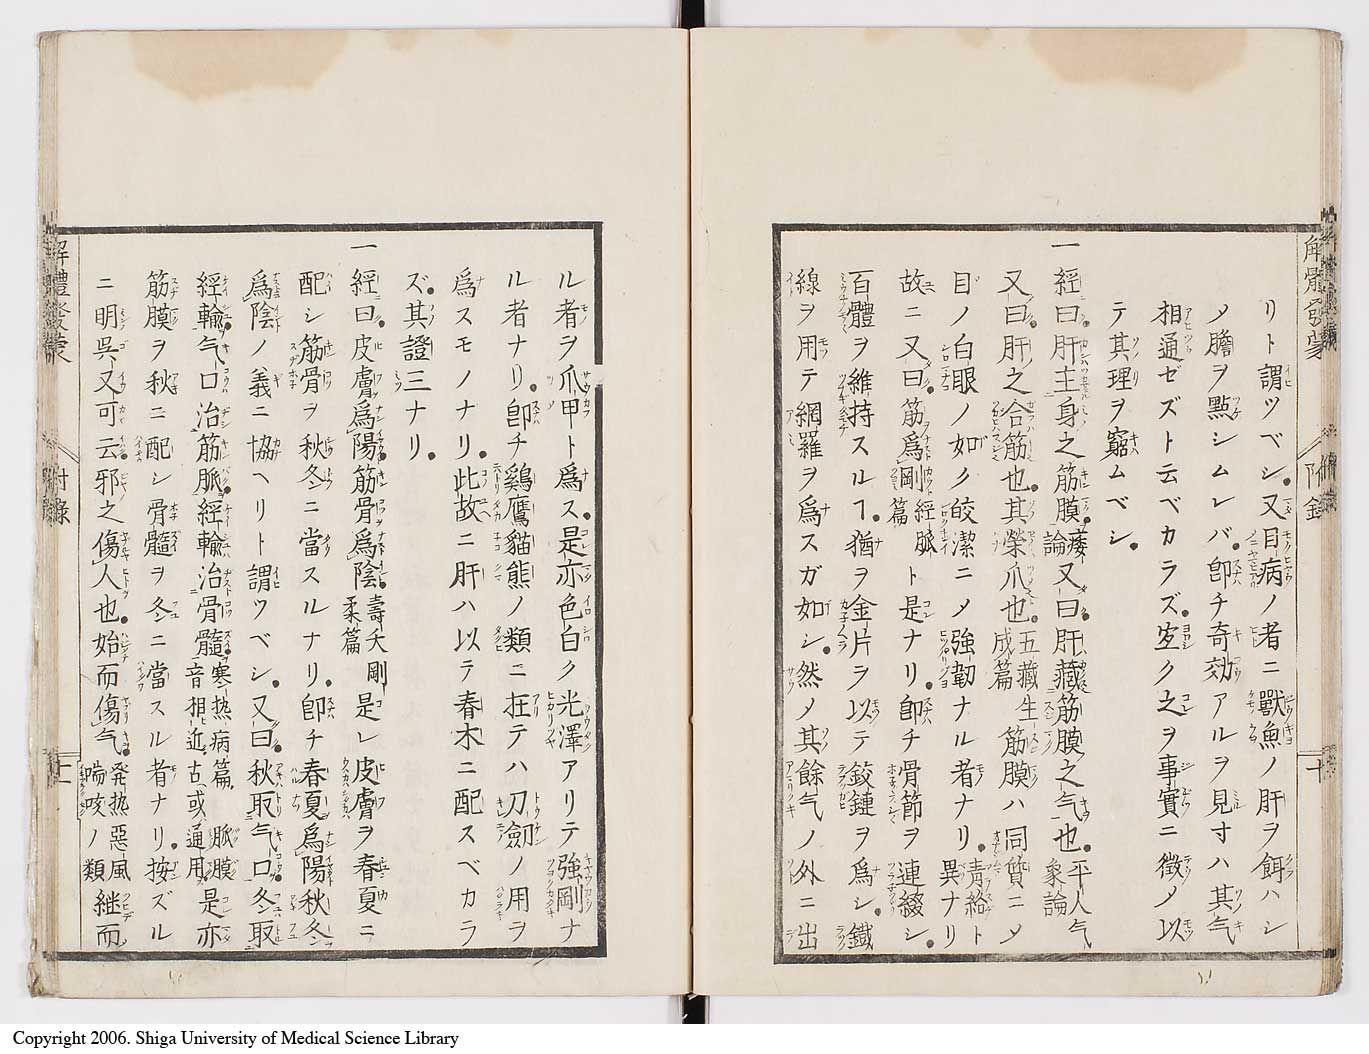 解體發蒙 附録 十
リト謂ツベシ。又目病ノ者ニ獸魚ノ肝ヲ餌ハシ
メ膽ヲ點シムレバ。卽チ奇効アルヲ見寸ハ其气
相通ゼズト云ベカラズ。宐ク之ヲ事實ニ徴メ以
テ其理ヲ窮ムベシ。
一 經曰肝主身之筋膜 痿論 又曰肝藏筋膜之气也。平人气象論
又曰。肝之合筋也。其榮爪也。五藏生成篇 筋膜ハ同質ニメ
目ノ白眼ノ如ク皎潔ニメ強韌ナル者ナリ。青給ト異ナリ
故ニ又曰。筋爲剛 經脈篇 ト是ナリ。卽チ骨節ヲ連綴シ。
百體ヲ維持スルヿ。猶ヲ金片ヲ以テ鉸鏈ヲ爲シ。鐵
線ヲ用テ網羅ヲ爲スガ如シ。然メ其餘气ノ外ニ出
ル者ヲ爪甲ト爲ス。是亦色白ク光澤アリテ強剛ナ
ル者ナリ。卽チ鷄鷹貓熊ノ類ニ在テハ刀劒ノ用ヲ
爲スモノナリ。此故ニ肝ハ以テ春木ニ配スベカラ
ズ。其證三ナリ。
一 經曰。皮膚爲陽筋骨爲陰。壽夭剛柔篇 是レ皮膚ヲ春夏ニ
配シ筋骨ヲ秋冬ニ當スルナリ。卽チ春夏爲陽秋冬
爲陰ノ義ニ協ヘリト謂ツベシ。又曰。秋取气口。冬取
經輸。气口治筋脈。經輸治骨髓。寒热病篇。脈膜音相近。古或通用。是亦
筋膜ヲ秋ニ配シ骨髓ヲ冬ニ當スル者ナリ。按ズル
ニ明呉又可云。邪之傷人也。始而傷气。発热惡風喘咳ノ類 継而
解體發蒙 附録 十一
Copyright 2006. Shiga University of Medical Science Library